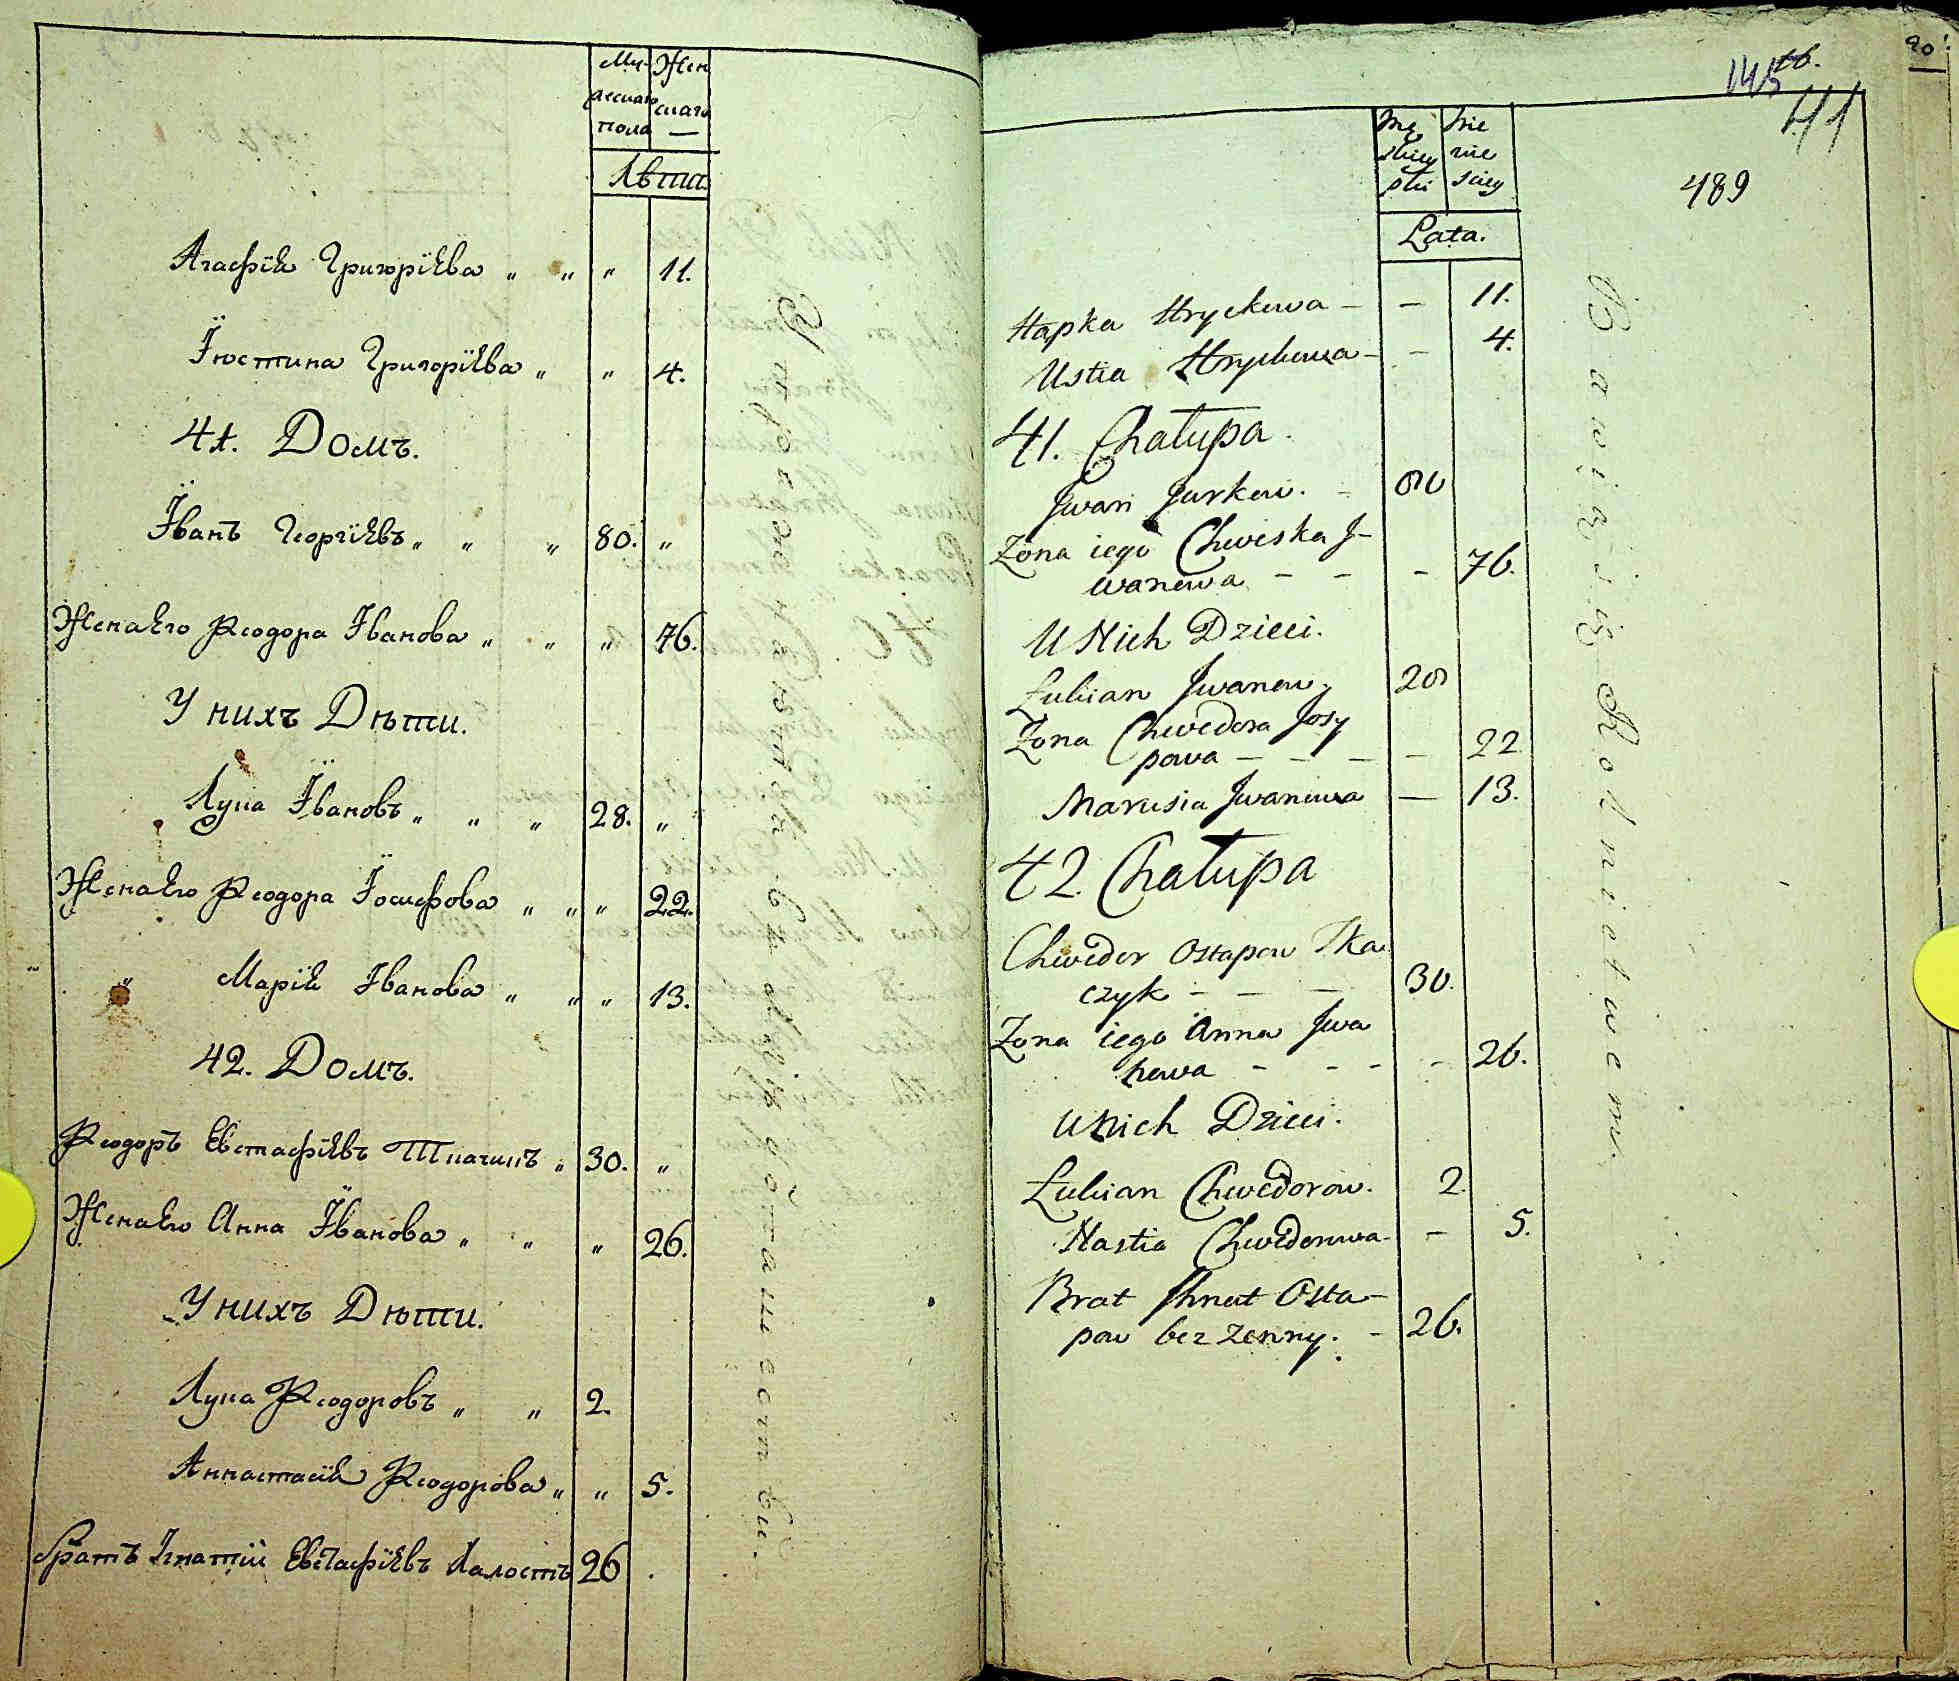 Му- Жен
жескаго скаго
пола —
Лѣта.
Агафіѣ Григоріѣва „ „ „ 11.
Їюстина Григоріѣва „ „ 4.
41. Домъ.
Їванъ Георгіѣвъ „ „ „ 80. „
Жена Ѣго Ѳеодора Їванова „ „ „ 76.
У нихъ Дѣти.
Лука Ївановъ „ „ „ 28. „
Жена Ѣго Ѳеодора Їосифова „ „ „ 22.
„ Маріѣ Їванова „ „ „ 13.
42. Домъ.
Ѳеодоръ Евстафіѣвъ Ткачикъ „ 30. „
Жена Ѣго Анна Їванова „ „ „ 26.
У нихъ Дѣти.
Лука Ѳеодоровъ „ „ 2.
Анастасіѣ Ѳеодорова „ „ 5.
Братъ Їгнатій Евстафіѣвъ Халостъ 26
Mę skiey płci
Nie wie sciey
Lata.
145
41
489
Hapka Hryckowa — — 11.
Ustia Hryckowa — — 4.
41. Chałupa.
Jwan Jurkow. — 80
Zona iego Chwieska J-
wanowa — — — 76.
U Nich Dzieci.
Łukian Jwanow. 28
Zona Chwedora Josy
powa — — — — 22
Marusia Jwanowa — 13.
42 Chałupa
Chwedor Ostapow Tka
czyk — — — 30.
Zona iego Anna Jwa
nowa — — — — 26.
U Nich Dzieci.
Łukian Chwedorow. 2
Nastia Chwedorowa — — 5.
Brat Ihnat Osta-
pow bez Zenny. — 26.
Bawią się Rolnictwem.